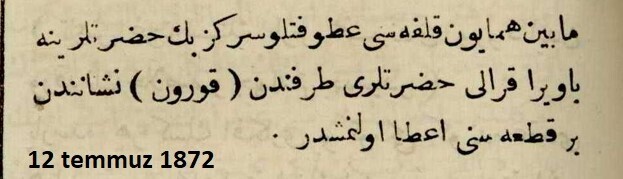 مابين همايون قلفه سى عطوفتلو سركز بك حضرتلرينه
باويرا قرالى حضرتلرى طرفندن ( قورون ) نشانندن
بر قطعه سنى اعطا اولنمشدر .
12 temmuz 1872